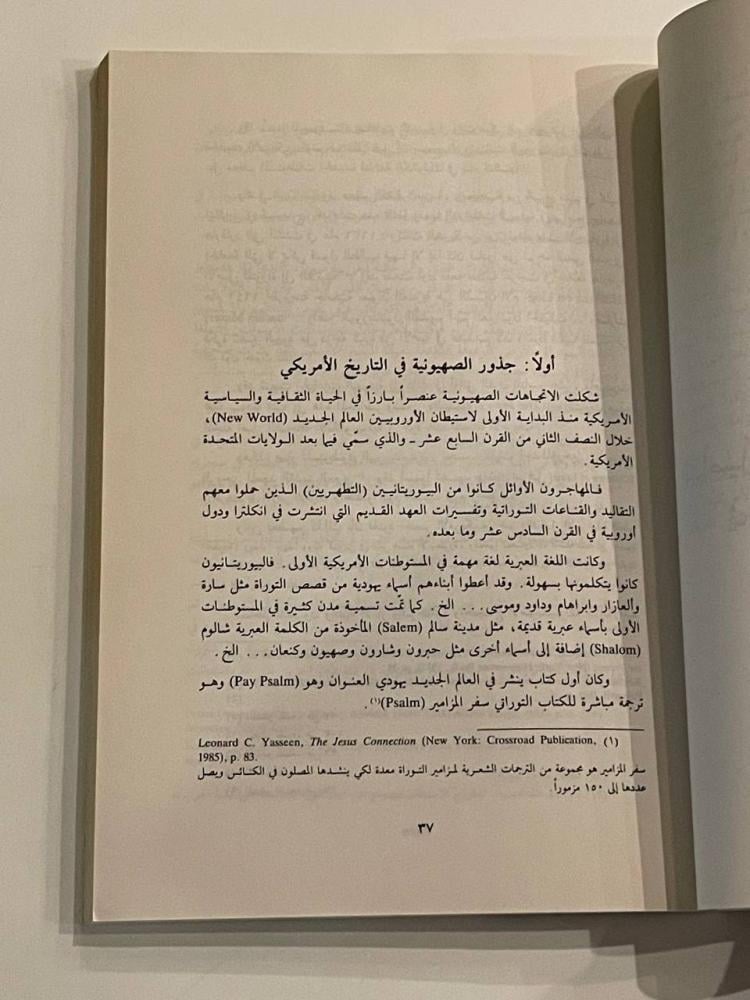 أولاً: جذور الصهيونية في التاريخ الأمريكي
شكلت الاتجاهات الصهيونية عنصراً بارزاً في الحياة الثقافية والسياسية
الأمريكية منذ البداية الأولى لاستيطان الأوروبيين العالم الجديد (New World)،
خلال النصف الثاني من القرن السابع عشر ـ والذي سمّي فيما بعد الولايات المتحدة
الأمريكية.
فالمهاجرون الأوائل كانوا من البيوريتانيين (التطهريين) الذين حملوا معهم
التقاليد والقناعات التوراتية وتفسيرات العهد القديم التي انتشرت في انكلترا ودول
أوروبية في القرن السادس عشر وما بعده.
وكانت اللغة العبرية لغة مهمة في المستوطنات الأمريكية الأولى. فالبيوريتانيون
كانوا يتكلمونها بسهولة. وقد أعطوا أبناءهم أسماء يهودية من قصص التوراة مثل سارة
وألعازار وابراهام وداود وموسى... الخ. كما تمّت تسمية مدن كثيرة في المستوطنات
الأولى بأسماء عبرية قديمة، مثل مدينة سالم (Salem) المأخوذة من الكلمة العبرية شالوم
(Shalom) إضافة إلى أسماء أخرى مثل حبرون وشارون وصهيون وكنعان... الخ.
وكان أول كتاب ينشر في العالم الجديد يهودي العنوان وهو (Pay Psalm) وهو
ترجمة مباشرة للكتاب التوراتي سفر المزامير (Psalm)(١).
(١) Leonard C. Yasseen, The Jesus Connection (New York: Crossroad Publication,
1985), p. 83.
سفر المزامير هو مجموعة من الترجمات الشعرية لمزامير التوراة معدة لكي ينشدها المصلون في الكنائس ويصل
عددها إلى ١٥٠ مزموراً.
٣٧